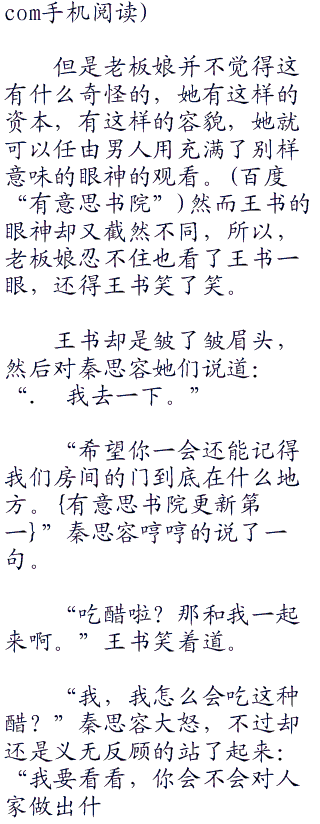 com手机阅读)
但是老板娘并不觉得这
有什么奇怪的，她有这样的
资本，有这样的容貌，她就
可以任由男人用充满了别样
意味的眼神的观看。(百度
“有意思书院”)然而王书的
眼神却又截然不同，所以，
老板娘忍不住也看了王书一
眼，还得王书笑了笑。
王书却是皱了皱眉头，
然后对秦思容她们说道：
“． 我去一下。”
“希望你一会还能记得
我们房间的门到底在什么地
方。{有意思书院更新第
一}”秦思容哼哼的说了一
句。
“吃醋啦？那和我一起
来啊。”王书笑着道。
“我，我怎么会吃这种
醋？”秦思容大怒，不过却
还是义无反顾的站了起来：
“我要看看，你会不会对人
家做出什